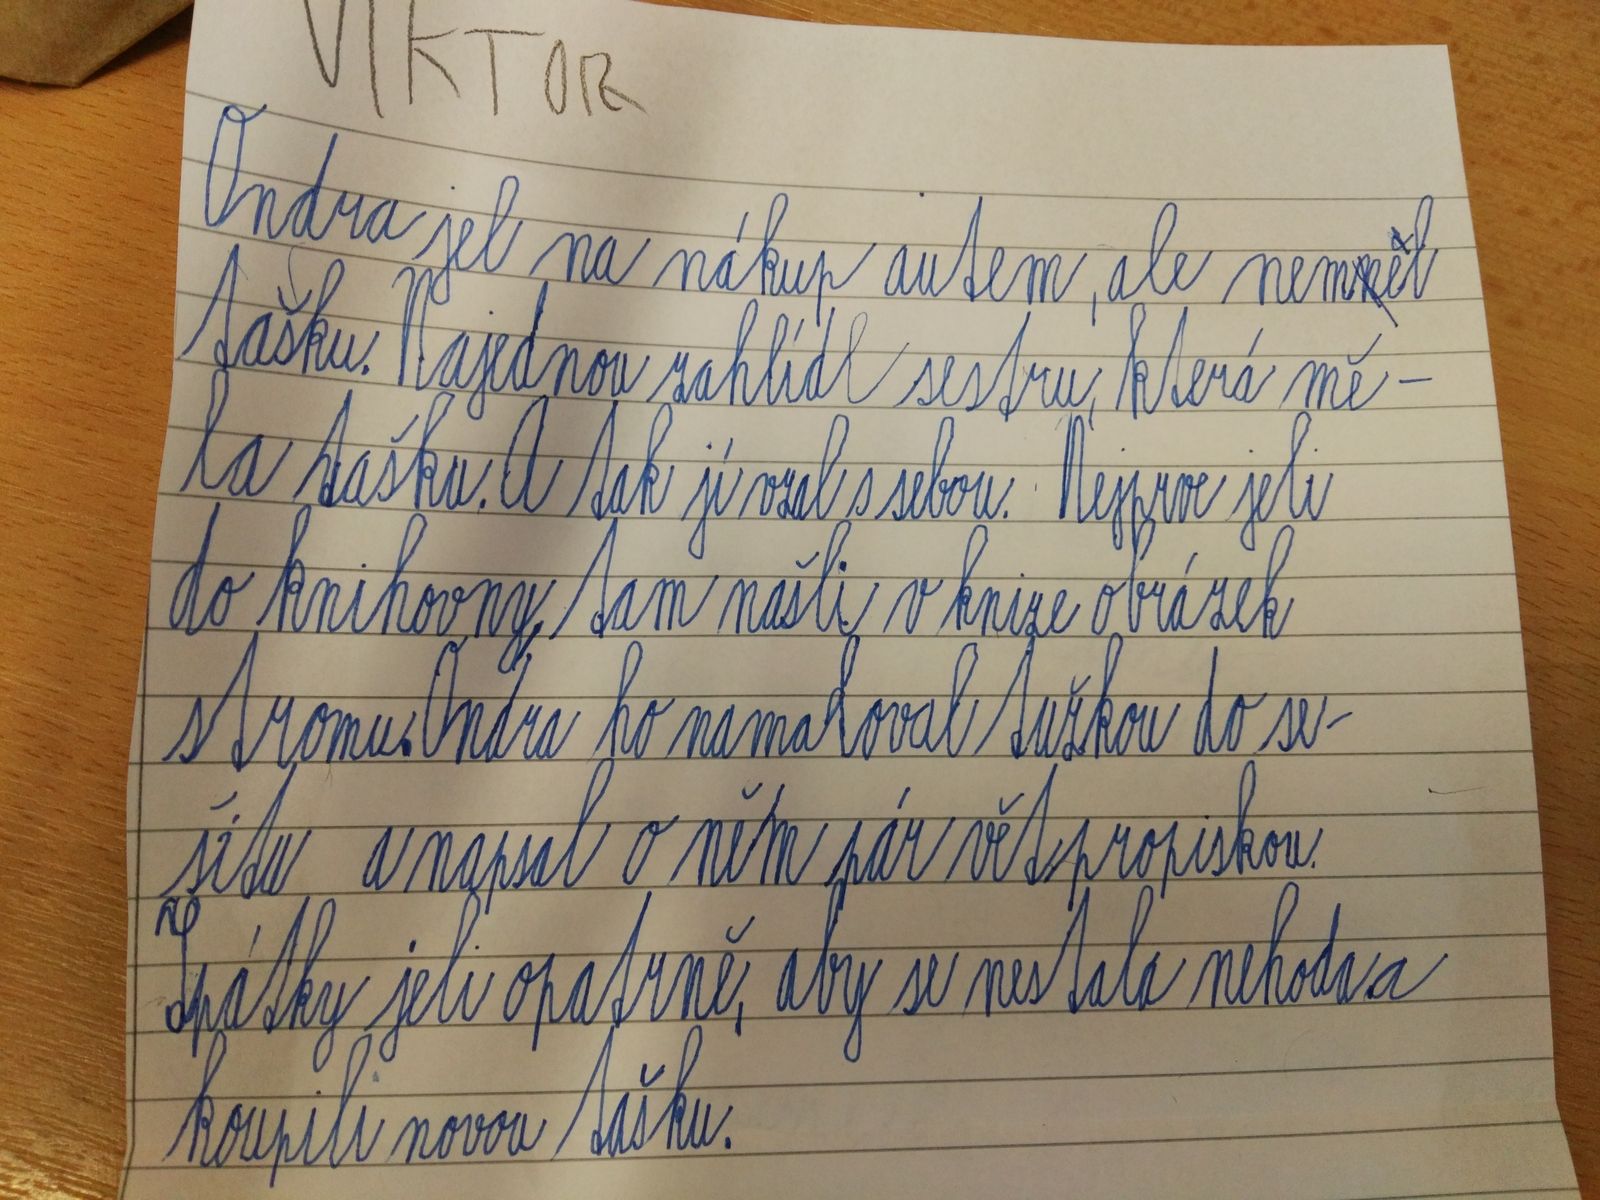 VIKTOR
Ondra jel na nákup autem, ale neměl
tašku. Najednou zahlídl sestru, která mě-
la tašku. A tak jí vzal s sebou. Nejprve jeli
do knihovny, tam našli v knize obrázek
stromu. Ondra ho namaloval tužkou do se-
šitu a napsal o něm pár vět propiskou.
Zpátky jeli opatrně, aby se nestala nehoda a
koupili novou tašku.